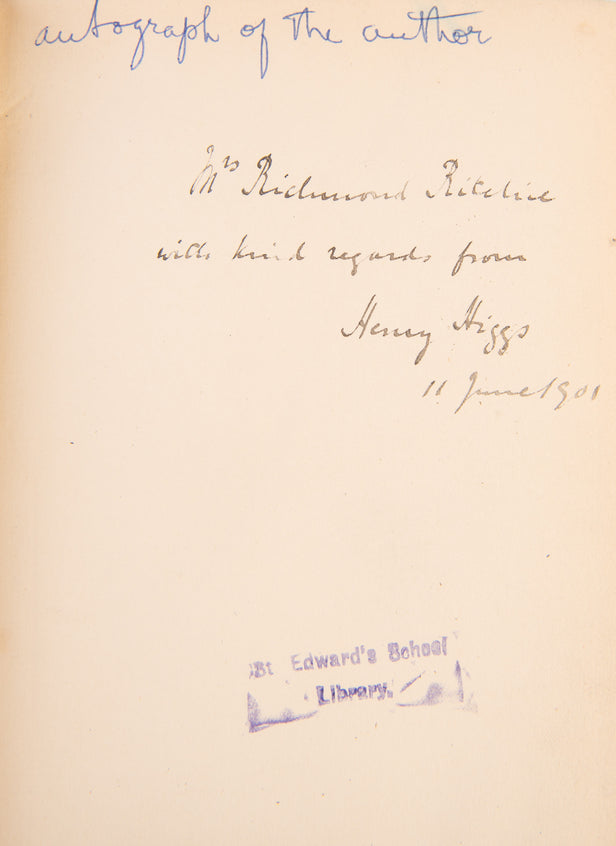 autograph of the author
Mrs Richmond Ritchie
with kind regards from
Henry Higgs
11 June 1901
St Edward's School
Library.